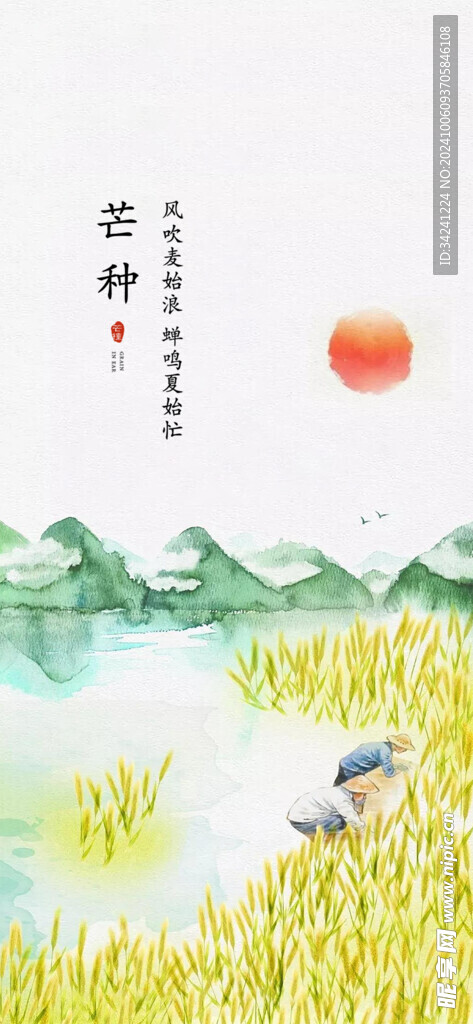 芒种
风吹麦始浪 蝉鸣夏始忙
芒種
GRAIN
IN EAR
ID:34241224 NO:20241006093705846108
昵享网 www.nipic.cn